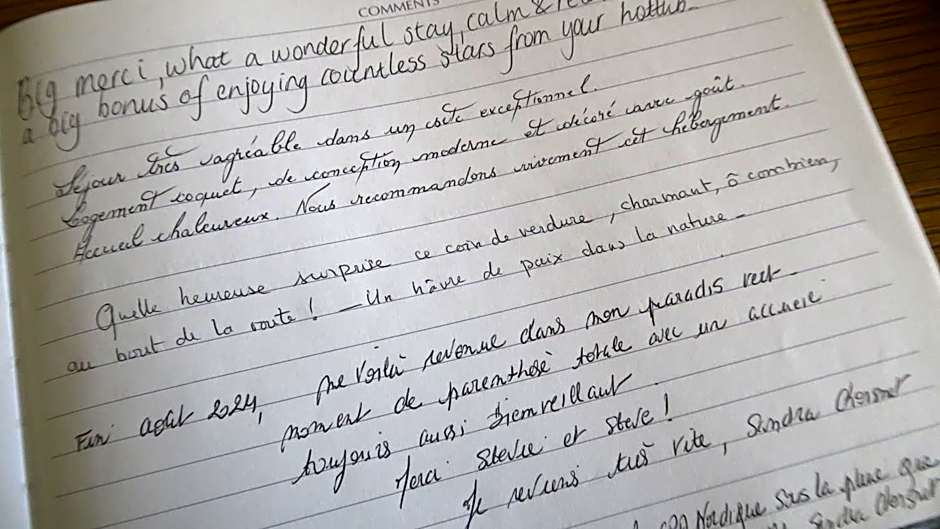 COMMENTS
Big merci, what a wonderful stay, calm &
a big bonus of enjoying countless stars from your hottub.
Séjour très agréable dans un site exceptionnel.
Logement coquet, de conception moderne et décoré avec goût.
Accueil chaleureux. Nous recommandons vivement cet hébergement.
Quelle heureuse surprise ce coin de verdure, charmant, ô combien,
au bout de la route! – Un hâvre de paix dans la nature –
Fin août 2024, me voilà revenue dans mon paradis vert –
moment de parenthèse totale avec un accueil
toujours aussi bienveillant
Merci Stevie et Steve!
Je reviens très vite, Sandra
Nordique sus la place que
Sandra